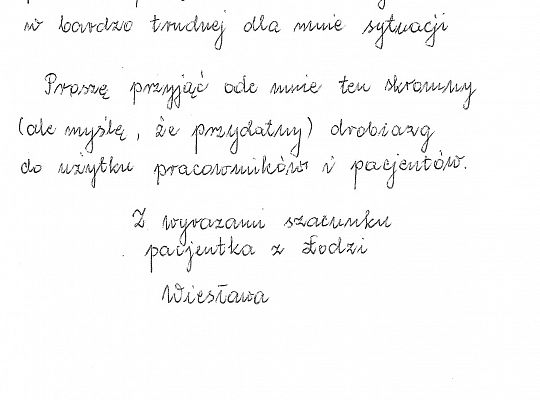 w bardzo trudnej dla mnie sytuacji
Proszę przyjąć ode mnie ten skromny
(ale myślę, że przydatny) drobiazg
do użytku pracowników i pacjentów.
Z wyrazami szacunku
pacjentka z Łodzi
Wiesława